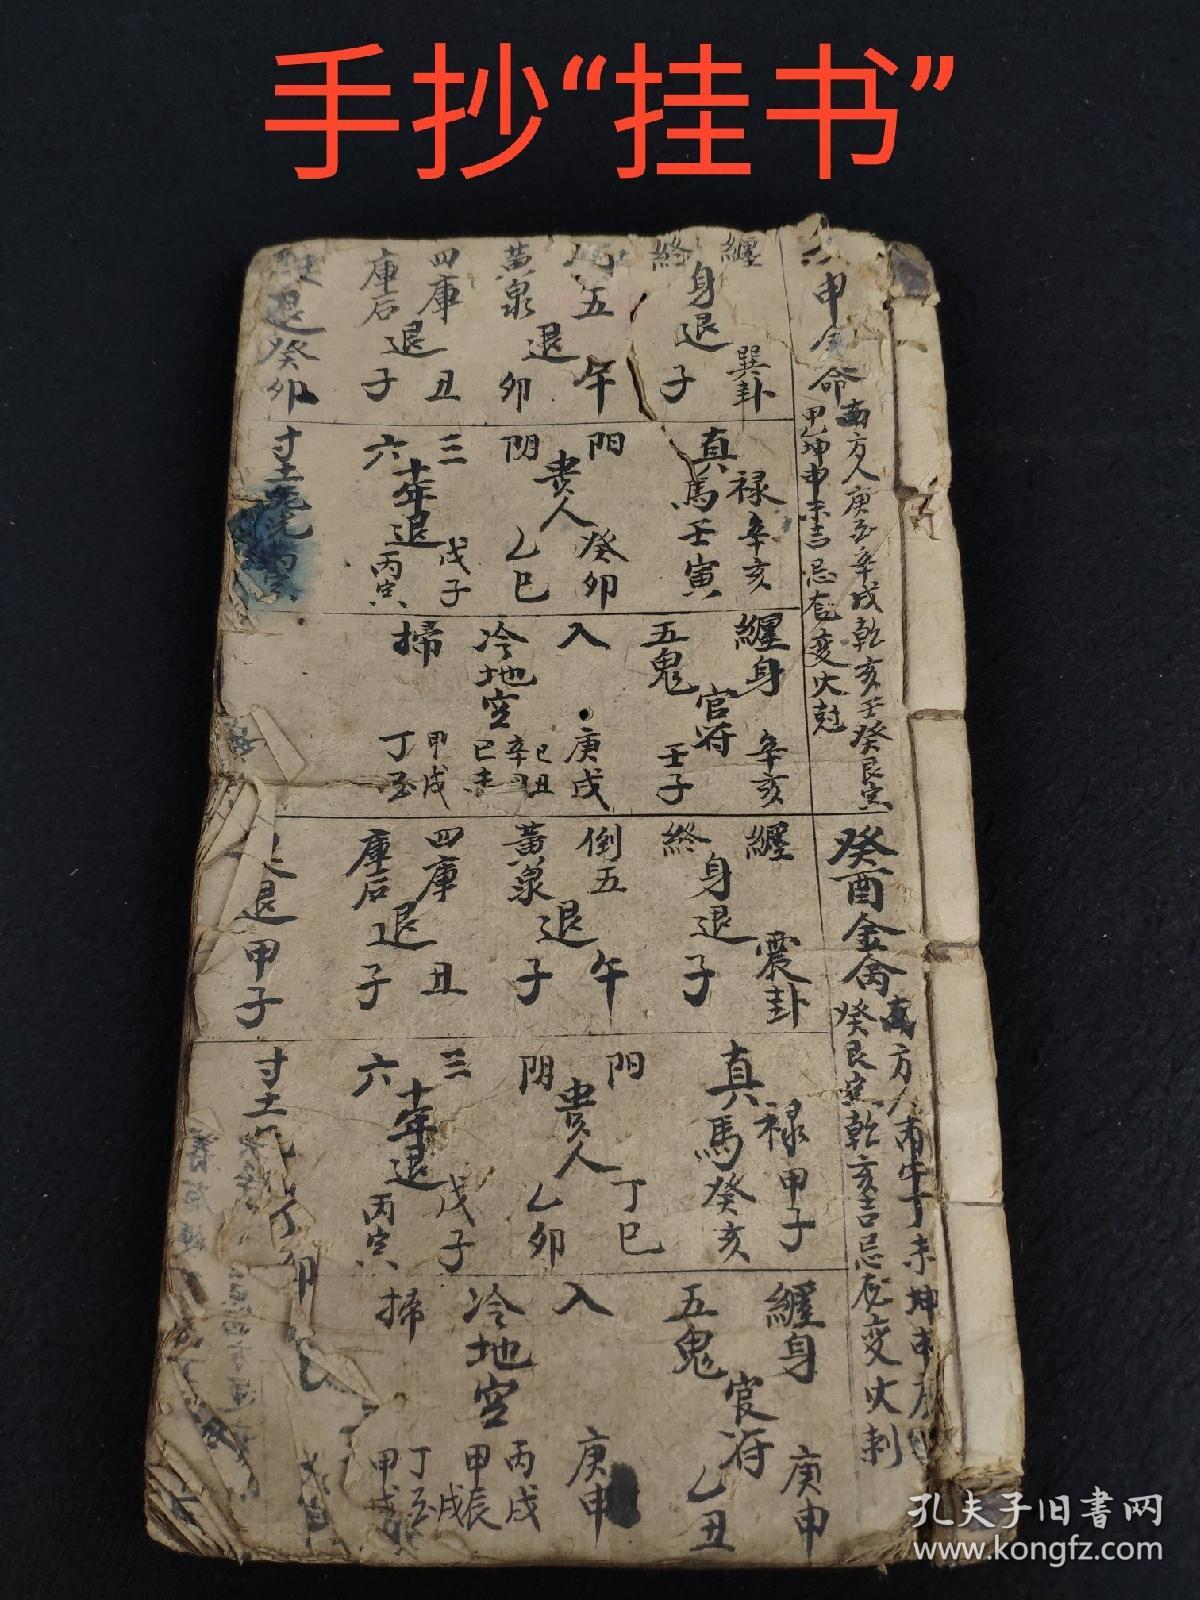 手抄“挂书”
申金命
南方人庚酉辛戌乾亥壬癸艮寅
甲乙坤申未吉忌冘变火尅
巽卦
纏身退子
終
五午
黃泉退卯
四庫退丑
庫后子
退癸卯
禄辛亥
真馬壬寅
陽貴人癸卯
陰乙巳
三十年退戊子
六丙寅
纏身辛亥
官符
五鬼壬子
入庚戌
冷地空己丑辛丑己未
甲戌
掃丁酉
癸酉金命
南方人丙午丁未坤申庚
癸艮寅乾亥吉忌冘变火剋
震卦
纏身退子
終
倒五午
黃泉退子
四庫退丑
庫后子
退甲子
禄甲子
真馬癸亥
陽貴人丁巳
陰乙卯
三十年退戊子
六丙寅
寸土
丁卯
纏身庚申
官符
五鬼乙丑
入庚申
冷地空丙戌甲辰
掃丁酉甲戌
孔夫子旧書网
www.kongfz.com